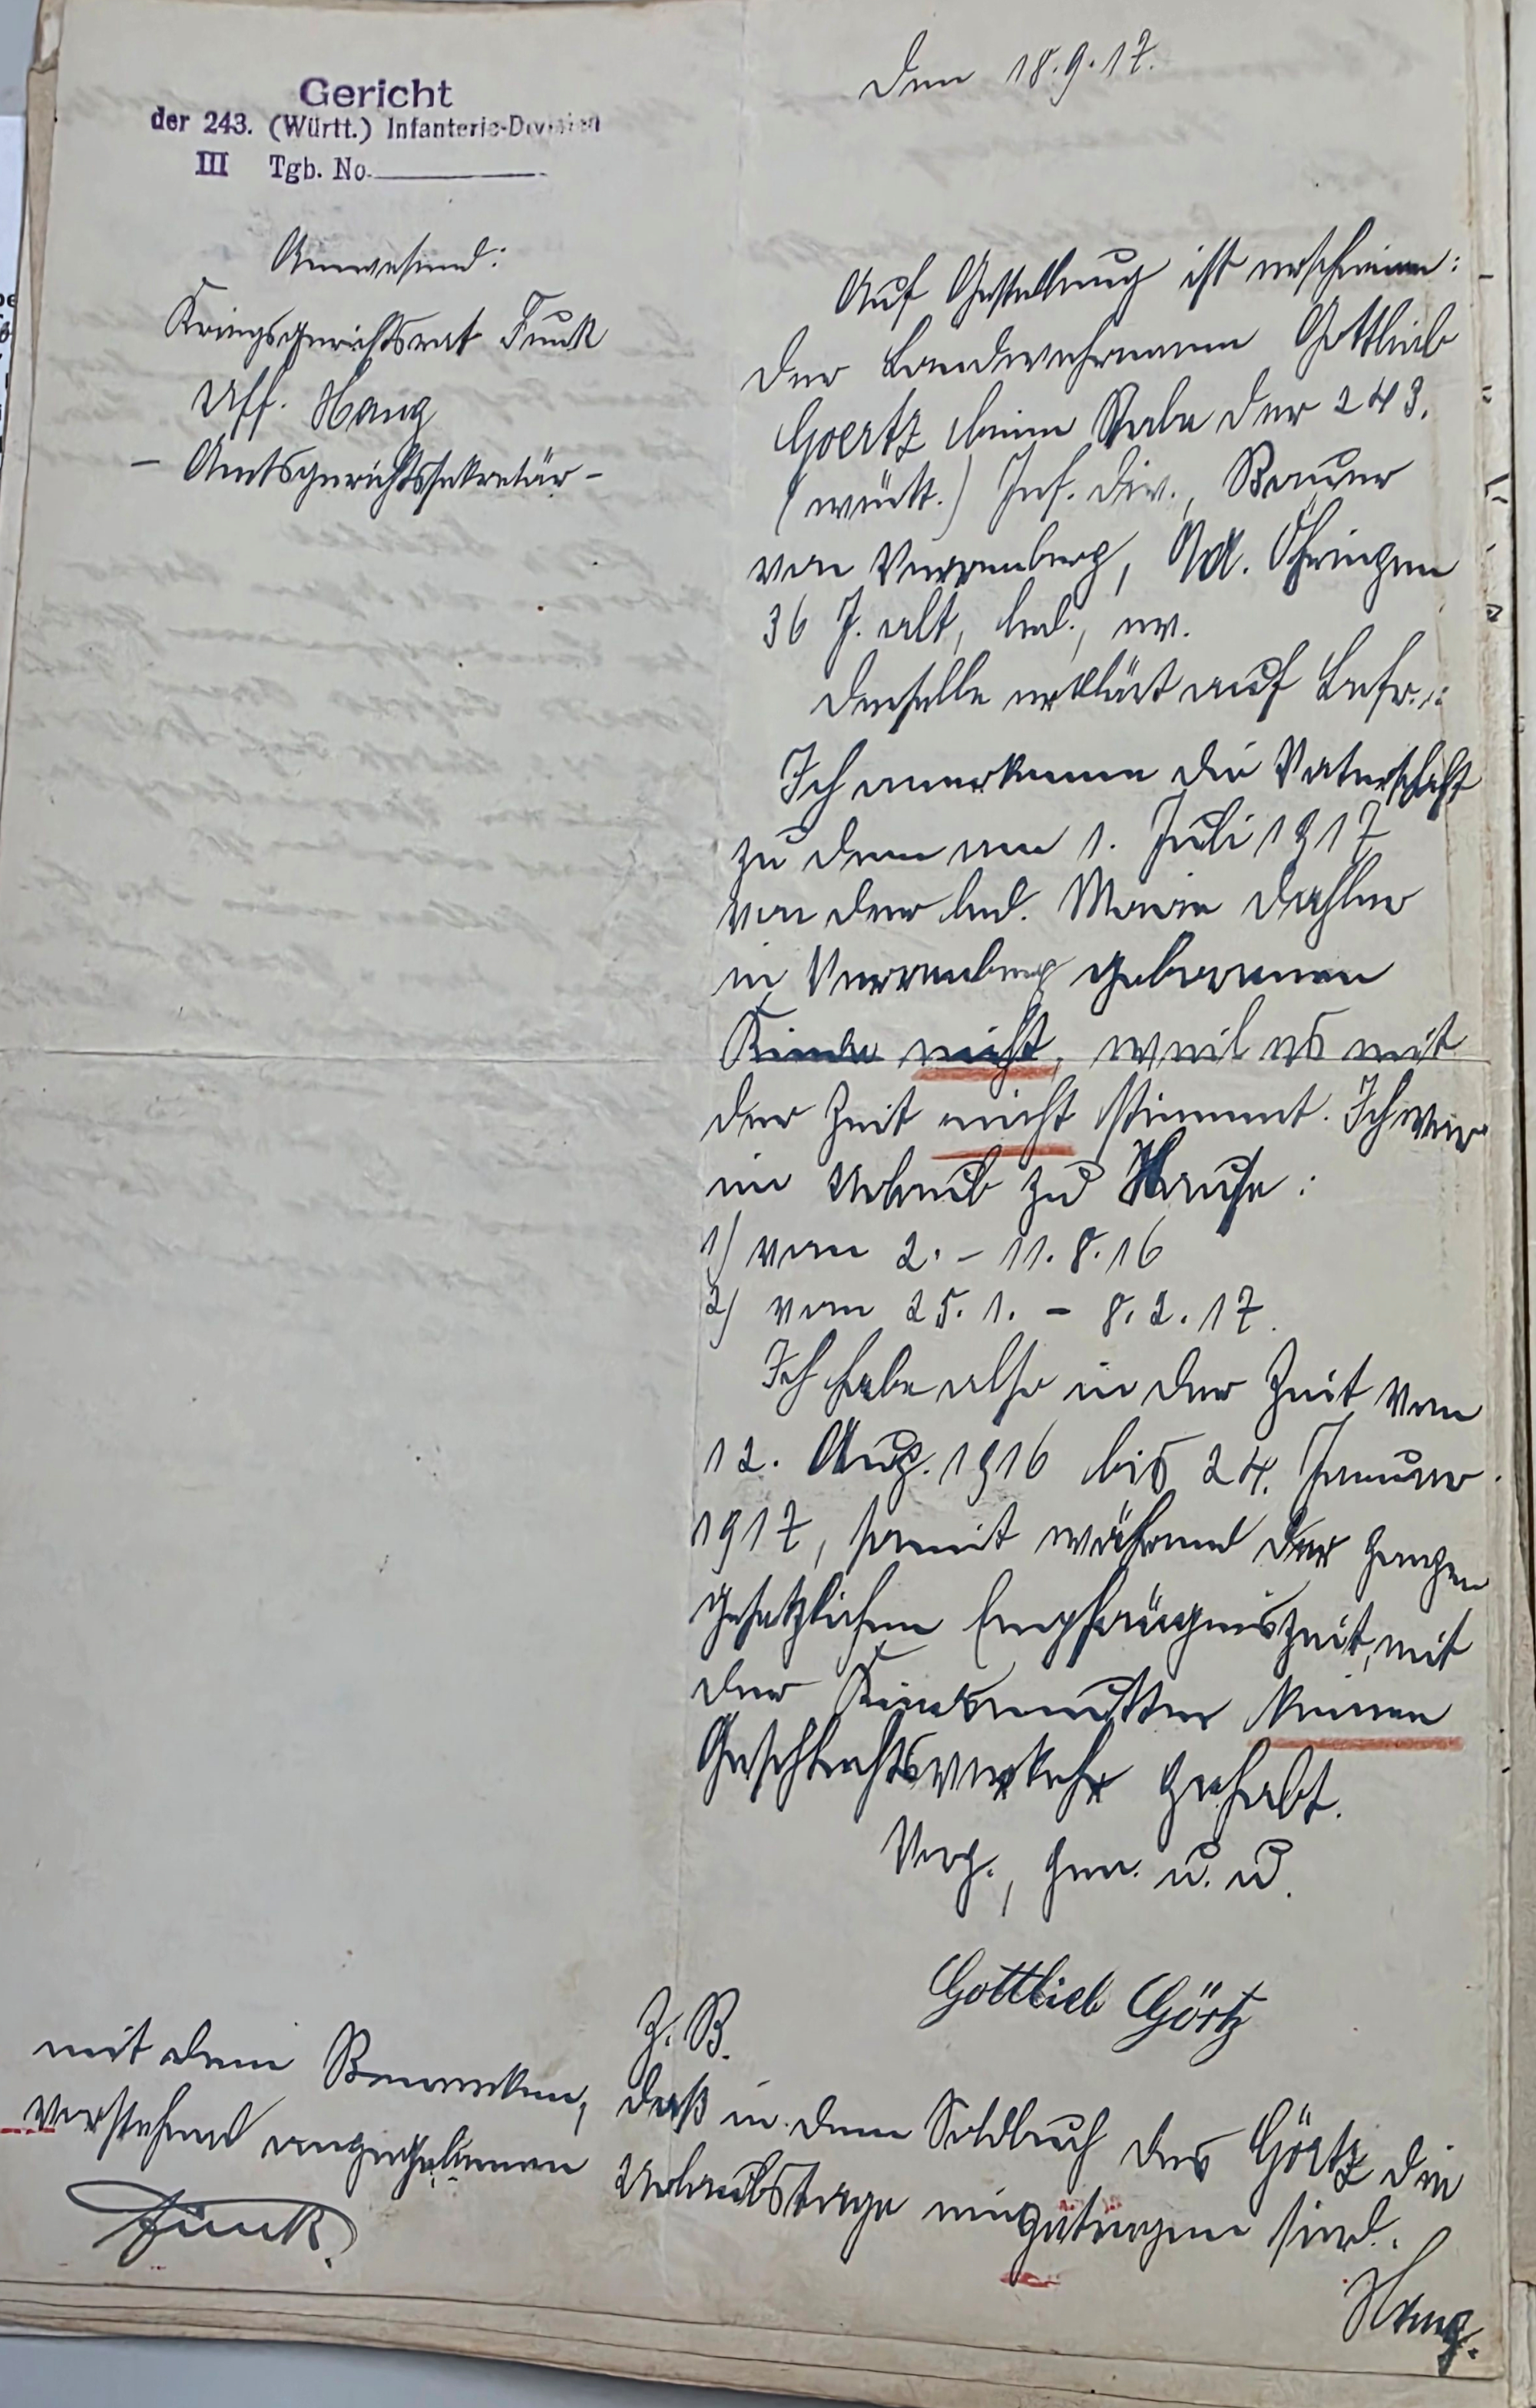 Gericht
der 243. (Württ.) Infanterie-Division
III Tgb. No.
Anwesend:
Kriegsgerichtsrat Funk
Uff. Haug
- Amtsgerichtssekretär -
Den 18.9.17.
Auf Gestellung ist erschienen:
der Landwehrmann Gottlieb
Goertz beim Stabe der 243.
(württ.) Inf. Div., Bauer
von Verrenberg, OA. Öhringen
36 J. alt, led., ev.
Derselbe erklärt auf Befr.:
Ich anerkenne die Vaterschaft
zu dem am 1. Juli 1917
von der led. Marie Dahler
in Verrenberg geborenen
Kinde nicht, weil es mit
der Zeit nicht stimmt. Ich war
im Urlaub zu Hause:
1) vom 2. - 11.8.16
2) vom 25.1. - 8.2.17.
Ich habe also in der Zeit vom
12. Aug. 1916 bis 24. Januar
1917, somit während der ganzen
gesetzlichen Empfängniszeit, mit
der Kindsmutter keinen
Geschlechtsverkehr gehabt.
Vorg., gen. u. u.
Gottlieb Görtz
Z. B.
mit dem Bemerken, daß in dem Soldbuch des Görtz die
vorstehend angegebenen Urlaubstage eingetragen sind.
Funk.
Haug.